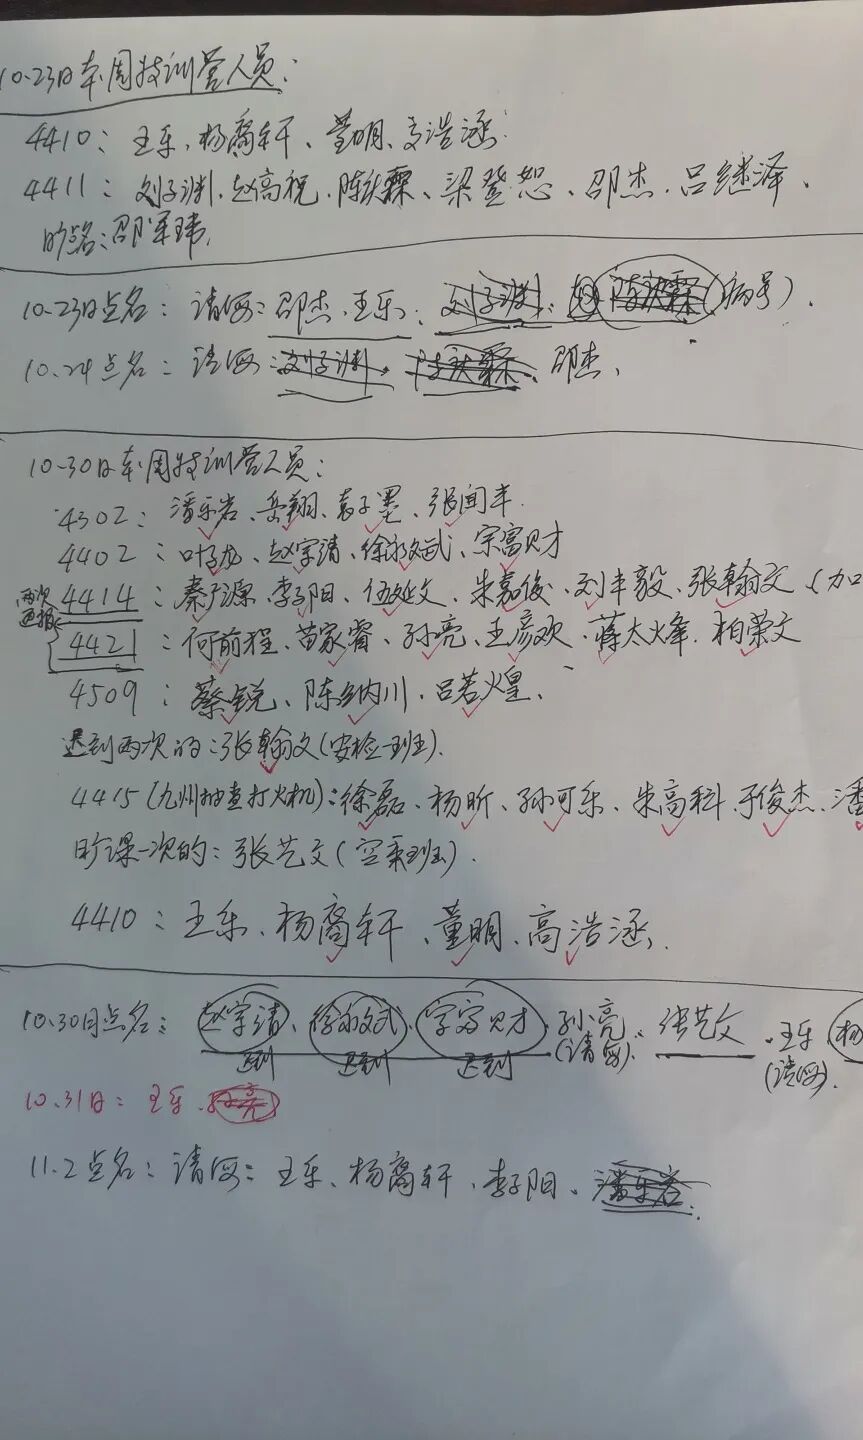 10.23日本周技训营人员：
4410：王乐、杨裔轩、董明、高浩涵
4411：刘子渊、赵高祝、陈秋霖、梁登恕、邵杰、吕继泽、
旷点名：邵军玮，
10.23日点名：请假：邵杰、王乐、刘子渊、陈秋霖（病号）．
10.24点名：请假：刘子渊、陈秋霖、邵杰、
10.30日本周技训营人员：
4302：潘乐岩、岳翔、袁子墨、张闻丰．
4402：叶子龙、赵宇清、徐永斌、宗富财
两次
4414：秦广源、李子阳、伍延文、朱嘉俊、刘丰毅、张翰文（加
迟报
4421：何前程、苗家睿、孙亮、王彦欢、蒋太烽．柏荣文
4509：蔡锐、陈纳川、吕若煌、
迟到两次的：张翰文（安检一班）．
4415（九州抽查打火机）：徐磊、杨昕、孙可乐、朱高科、于俊杰、潘
旷课一次的：张艺文（空乘班）．
4410：王乐、杨裔轩、董明、高浩涵．
10.30日点名：赵宇清、徐永斌、宗富财．孙亮（请假）、张艺文．王乐（请假）．杨
迟到 迟到 迟到
10.31日：王乐、孙亮
11.2点名：请假：王乐、杨裔轩、李子阳、潘乐岩．